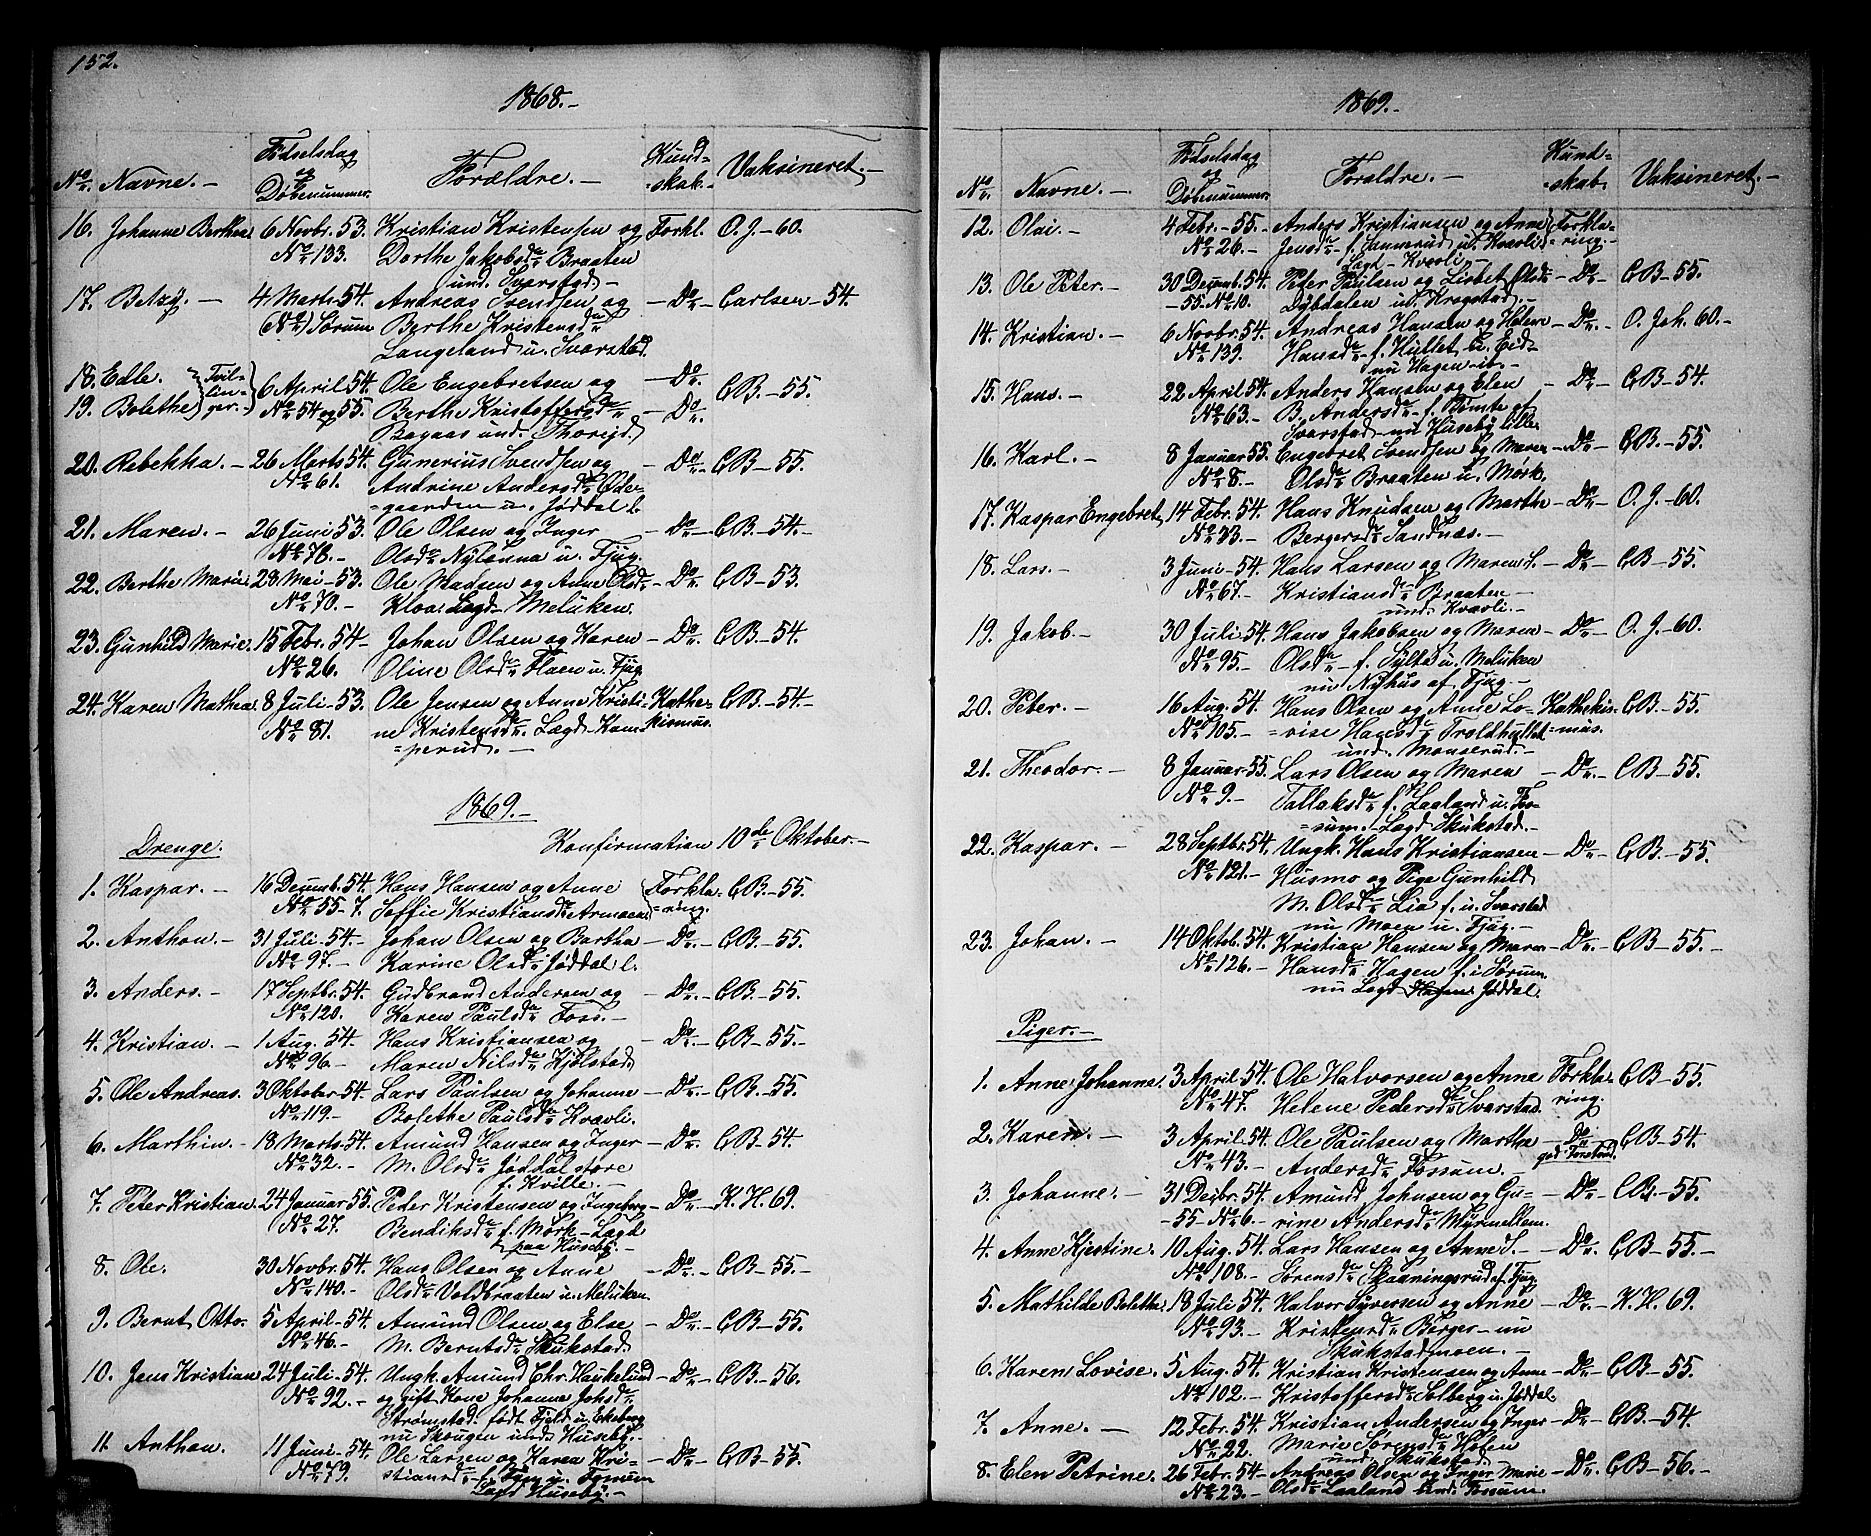 152.
1868.-
No. Navne.- Fødselsdag og Døbenummer. Forældre.- Kund-skab.- Vaksineret.-
16. Johanne Berthea. 6 Novbr. 53. Kristian Kristensen og Forkl. O. J.-60.
No 133. Dorthe Jakobsdr Braaten
und. Svarsfgd-
17. Betzy.- 4 Marts-54. Andreas Svendsen og -Do- Carlsen-54.
(No) Sørum Berthe Kristensdr
Langeland u. Svarstad.
18. Edle. Tvil- 6 April 54. Ole Engebretsen og -Do. CB-55.
19. Bolethe lin-ger. No 54 og 55. Berthe Kristoffersdr -Do.
Bagaas und. Thorsjd.
20. Rebekka.- 26 Marts 54. Gunerius Svendsen og -Do- CB-55.
No 61. Andrine Andersdr Øde-
=gaarden u. Jøddal l.
21. Maren.- 26 Juni 53. Ole Olsen og Inger -Do- CB-54.
No 78.- Olsdr Nylænna u. Fjug.
22. Berthe Marie. 28 Mai-53. Ole Madsen og Anne Olsdr -Do- CB-53.
No 70.- Kloa: Lægd- Meluken.
23. Gunhild Marie. 15 Febr. 54- Johan Olsen og Karen -Do- CB-54.
No 26. Oline Olsdr Floen u. Fjug.
24. Karen Mathea. 8 Juli-53. Ole Jensen og Anne Kristi- Kathe- CB-54.-
No 81. ne Kristensdr. Lægd-Kam- kismus.
=perud.-
1869.-
Drenge. Konfirmation 10de Oktober.-
1. Kaspar.- 16 Decemb. 54. Hans Hansen og Anne Forkla- CB-55.
No 55-7. Soffie Kristiansdr Armoen. =ring.
2. Anthon.- 31 Juli-54.- Johan Olsen og Bartha -Do- CB-55.
No 97.- Karine Olsdr Jøddal l.
3. Anders.- 17 Septbr. 54. Gudbrand Andersen og -Do- CB-55.
No 120. Karen Paulsdr Foss.-
4. Kristian.- 1 Aug. 54. Hans Kristiansen og -Do- CB-55.-
No 96.- Maren Nilsdr Kjølstad
5. Ole Andreas. 3 Oktober-54. Lars Paulsen og Johanne -Do- CB-55.
No 119.- Bolethe Paulsdr Kvavli.
6. Marthin.- 18 Marts-54. Amund Hansen og Inger -Do- CB-54.
No 32.- M. Olsdr Jøddal store
f. Kville.-
7. Peter Kristian. 24 Januar 55. Peder Kristensen og Ingeborg -Do- K. H. 69.
No 27. Bendiksdr f. Mørk-Lægd
paa Huseby.-
8. Ole. 30 Novbr. 54. Hans Olsen og Anne -Do- CB-55.-
No 140.- Olsdr Voldbraaten u. Meluken.
9. Bernt Otto. 5 April-54. Amund Olsen og Else -Do- CB-55.
No 46.- M. Berntsdr Skukstad.
10. Jens Kristian 24 Juli-54. Ungk. Amund Chr. Haukelund -Do- CB-56.
No 92.- og gift Kone Johanne Joksdr
Strømstad. født Fjeld u. Ekeberg
nu Skougen und. Huseby.-
11. Anthon. 11 Juni-54. Ole Larsen og Karen Kri- -Do- CB-55.
No 79. stiansdr- f. u. Fossum
Lægd Huseby.-
1869.-
No. Navne.- Fødselsdag og Døbenummer. Foraldre.- Kund-=skab. Vaksineret.-
12. Olai.- 4 Febr.-55.- Anders Kristiansen og Anne Forkla-
No 26.- Jensdr- f. Sannerud u. Kvavli =ring.-
Lægd- Kvavli.-
13. Ole Peter.- 30 Decemb. 54. Peder Paulsen og Lisbet Olsdr -Do- CB-55.
-55. No 10. Dybdalen u. Krogstad.-
14. Kristian.- 6 Novbr. 54. Andreas Hansen og Helene -Do- O. Joh. 60.-
No 139. Hansdr- f. Hullet u. Eid-
nu Hagen-ib.-
15. Hans.- 22 April 54. Anders Hansen og Elen -Do- CB-54.
No 63.- B. Andersdr- f. Tomte af
Svarstad-nu Huseby lille.
16. Karl.- 8 Januar 55. Engebret Svendsen og Maren -Do- CB-55.
No 8.- Olsdr Braaten u. Mørk.
17. Kaspar Engebret. 14 Febr. 54. Hans Knudsen og Marthe -Do- O. J-60.
No 33. Bergersdr Sandnæs.-
18. Lars.- 3 Juni-54. Hans Larsen og Maren L. -Do- CB-55.
No 67.- Kristiansdr Braaten-
und. Kvavli.-
19. Jakob.- 30 Juli 54. Hans Jakobsen og Maren -Do- O. J-60.
No 95.- Olsdr- f. Sylta u. Meluken
nu Nyhus af Fjug.-
20. Peter.- 16 Aug. 54. Hans Olsen og Anne Lo- Kathekis- CB-55.
No 105.- =vise Hansdr Troldhullet =mus.
und. Monserud.-
21. Theodor.- 8 Januar-55. Lars Olsen og Maren -Do- CB-55.
No 9.- Tallaksdr f. Laaland u. Fos-
=sum.- Lægd Skukstad.-
22. Kaspar.- 28 Septbr. 54. Ungk. Hans Kristiansen -Do- CB-55.
No 121.- Husmo og Pige Gunhild
M. Olsdr Lia f. u. Svarstad
nu Moen u. Fjug.-
23. Johan.- 14 Oktob. 54. Kristian Hansen og Maren -Do- CB-55.-
No 126.- Hansdr Hagen f. i Sørum
nu Lægd Jøddal.
Piger.-
1. Anne Johanne. 3 April-54. Ole Halvorsen og Anne Forkla- CB-55.
No 47. Helene Pedersdr Svarstad. ring.
2. Karen.- 3 April-54. Ole Paulsen og Marthe -Do- CB-54.
No 43.- Andersdr Fossum.- god Forstand.
3. Johanne.- 31 Decbr. 54. Amund Johnsen og Gu- -Do- CB-55.
-55-No 6.- rine Andersdr Myrmellem.
4. Anne Kjestine. 10 Aug. 54. Lars Hansen og Anne S.- -Do- CB-55.-
No 108.- Sørensdr Skaaningsrud af Fjug.
5. Mathilde Bolethe. 18 Juli 54. Halvor Syversen og Anne -Do- K. H. 69.
No 93.- Kristensdr Berger-nu
Skukstadmoen.-
6. Karen Lovise. 5 Aug. 54. Kristian Kristensen og Anne -Do- CB-55.
No 102.- Kristoffersdr Solberg u. Jøddal.
7. Anne.- 12 Febr. 54. Kristian Andersen og Inger -Do- CB-54.
No 22. Marie Sørensdr Holen
und. Skukstad.-
8. Elen Petrine. 26 Febr. 54- Andreas Olsen og Inger Marie -Do- CB-56.-
No 23.- Olsdr Laaland und. Fossum.-